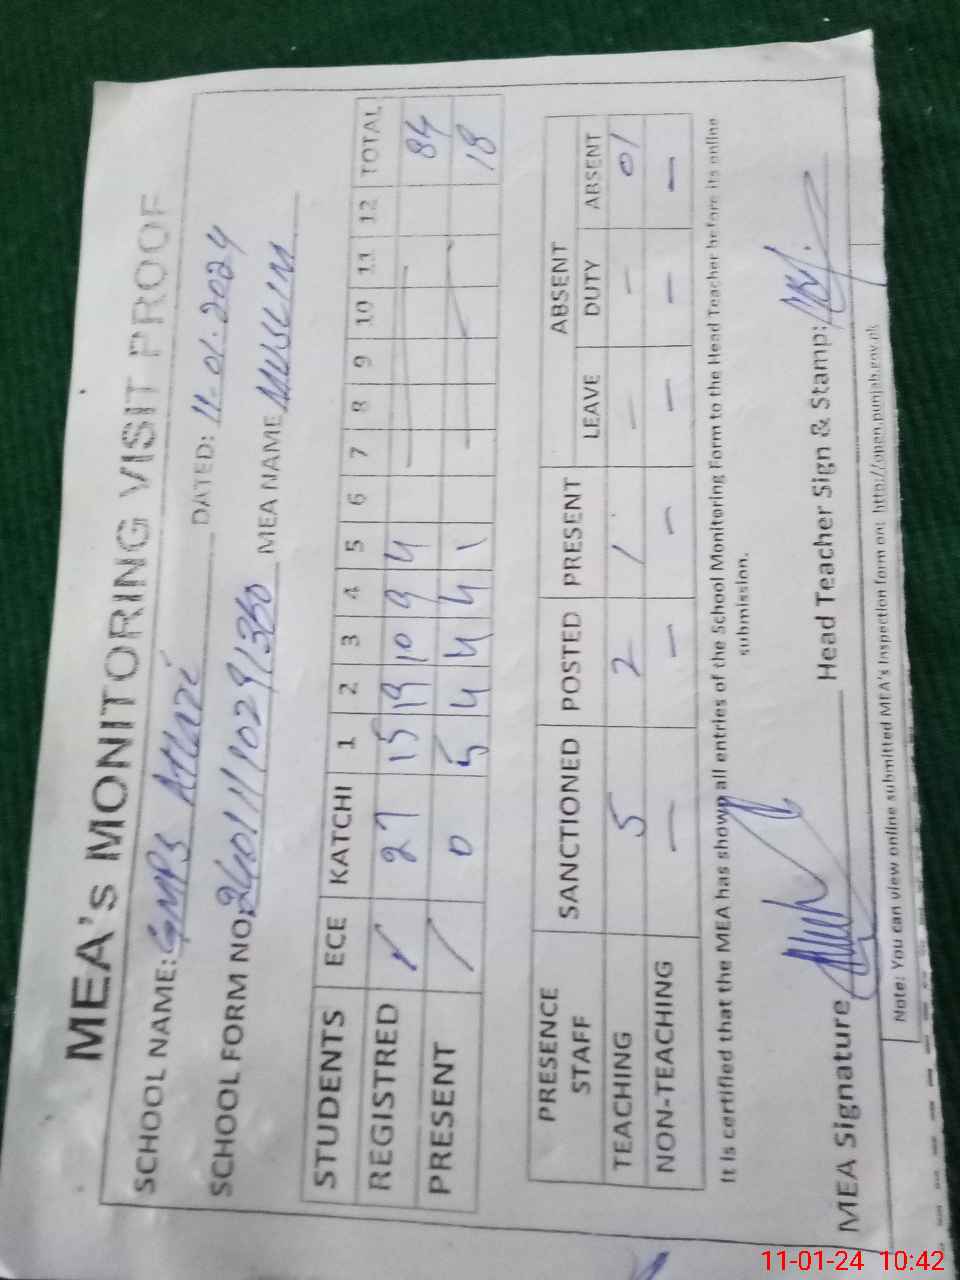 MEA's MONITORING VISIT PROOF
SCHOOL NAME: GMPS DATED: 11-01-2024
SCHOOL FORM NO: MEA NAME MUSLIM
STUDENTS ECE KATCHI 1 2 3 4 5 6 7 8 9 10 11 12 TOTAL
REGISTRED 27 15 19 10 9 4 84
PRESENT 0 5 4 4 4 1 18
PRESENCE STAFF SANCTIONED POSTED PRESENT ABSENT
LEAVE DUTY ABSENT
TEACHING 5 2 1 - - 01
NON-TEACHING - - - - - -
It is certified that the MEA has shown all entries of the School Monitoring Form to the Head Teacher before its online
submission.
MEA Signature Head Teacher Sign & Stamp:
Note: You can view online submitted MEA's inspection form on: http://open.punjab.gov.pk
11-01-24 10:42